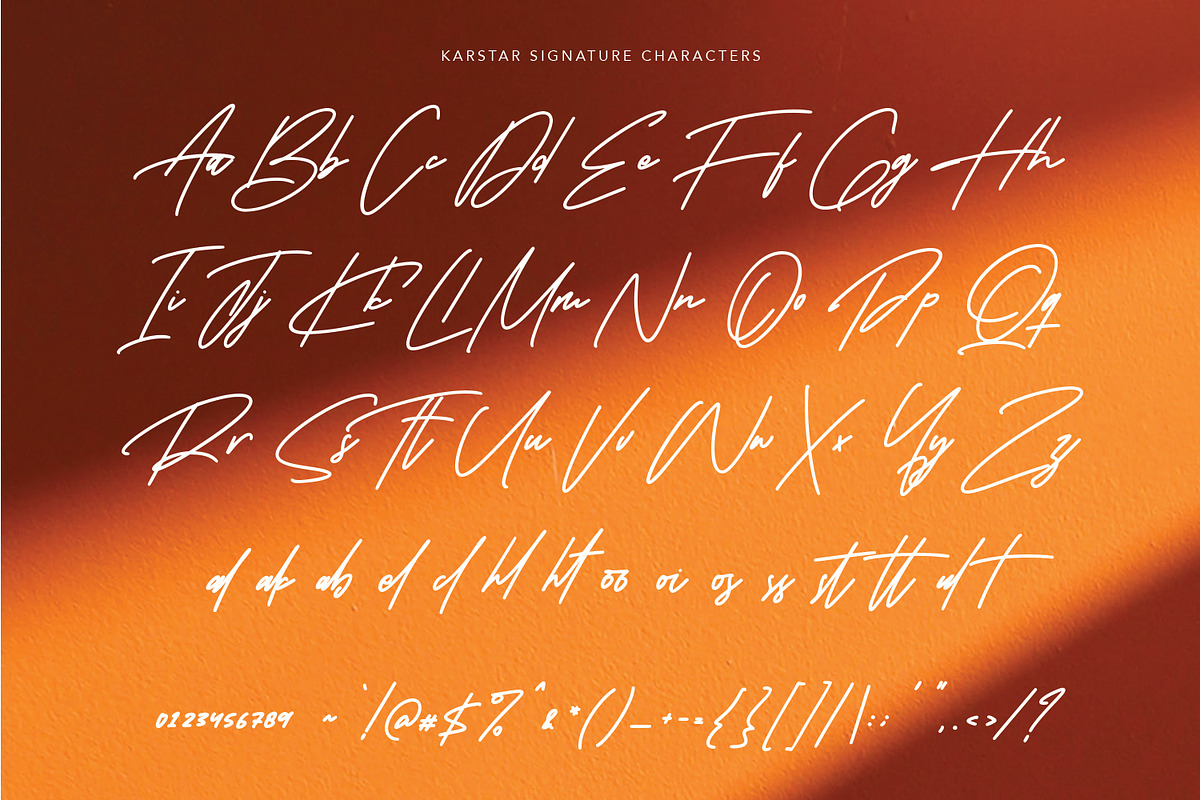 KARSTAR SIGNATURE CHARACTERS
Aa Bb Cc Dd Ee Ff Gg Hh
Ii Jj Kk Ll Mm Nn Oo Pp Qq
Rr Ss Tt Uu Vv Ww Xx Yy Zz
al ak ab el cl hl ht oo oi os ss st tt ul t
0123456789 ~ ` ! @ # $ % ^ & * ( ) _ + - = { } [ ] / | : ; ' " , . < > / ?